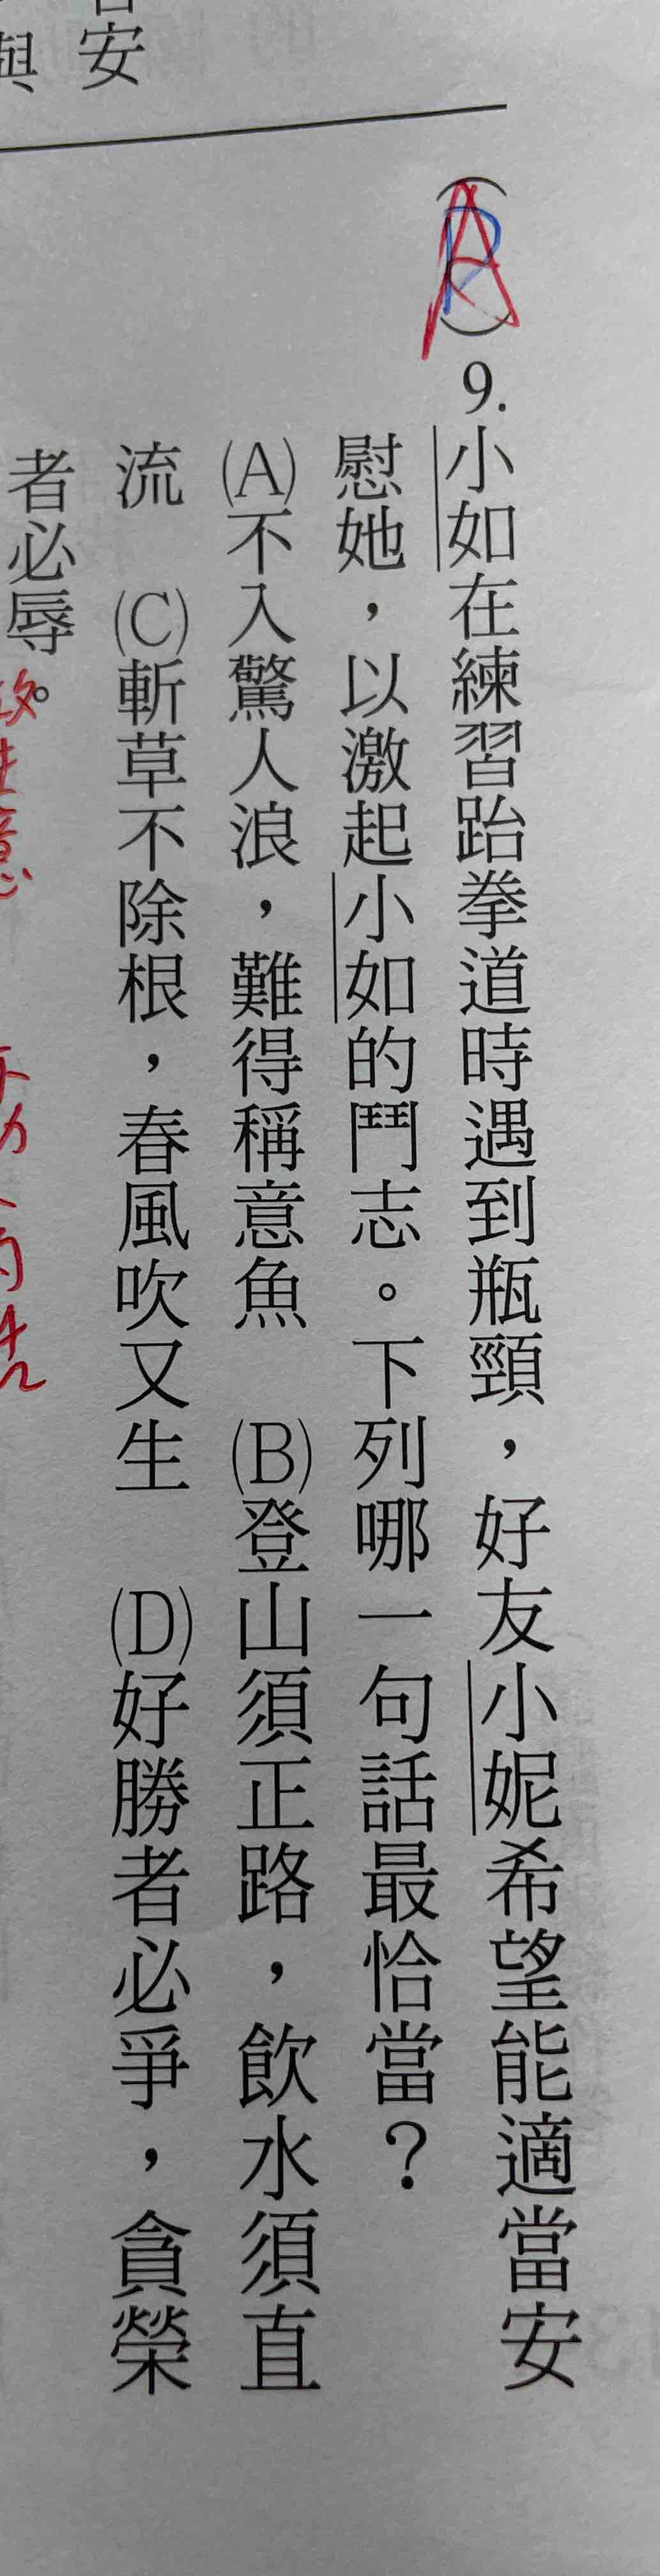 安
與
(A)9.小如在練習跆拳道時遇到瓶頸，好友小妮希望能適當安
慰她，以激起小如的鬥志。下列哪一句話最恰當？
(A)不入驚人浪，難得稱意魚　(B)登山須正路，飲水須直
流　(C)斬草不除根，春風吹又生　(D)好勝者必爭，貪榮
者必辱。